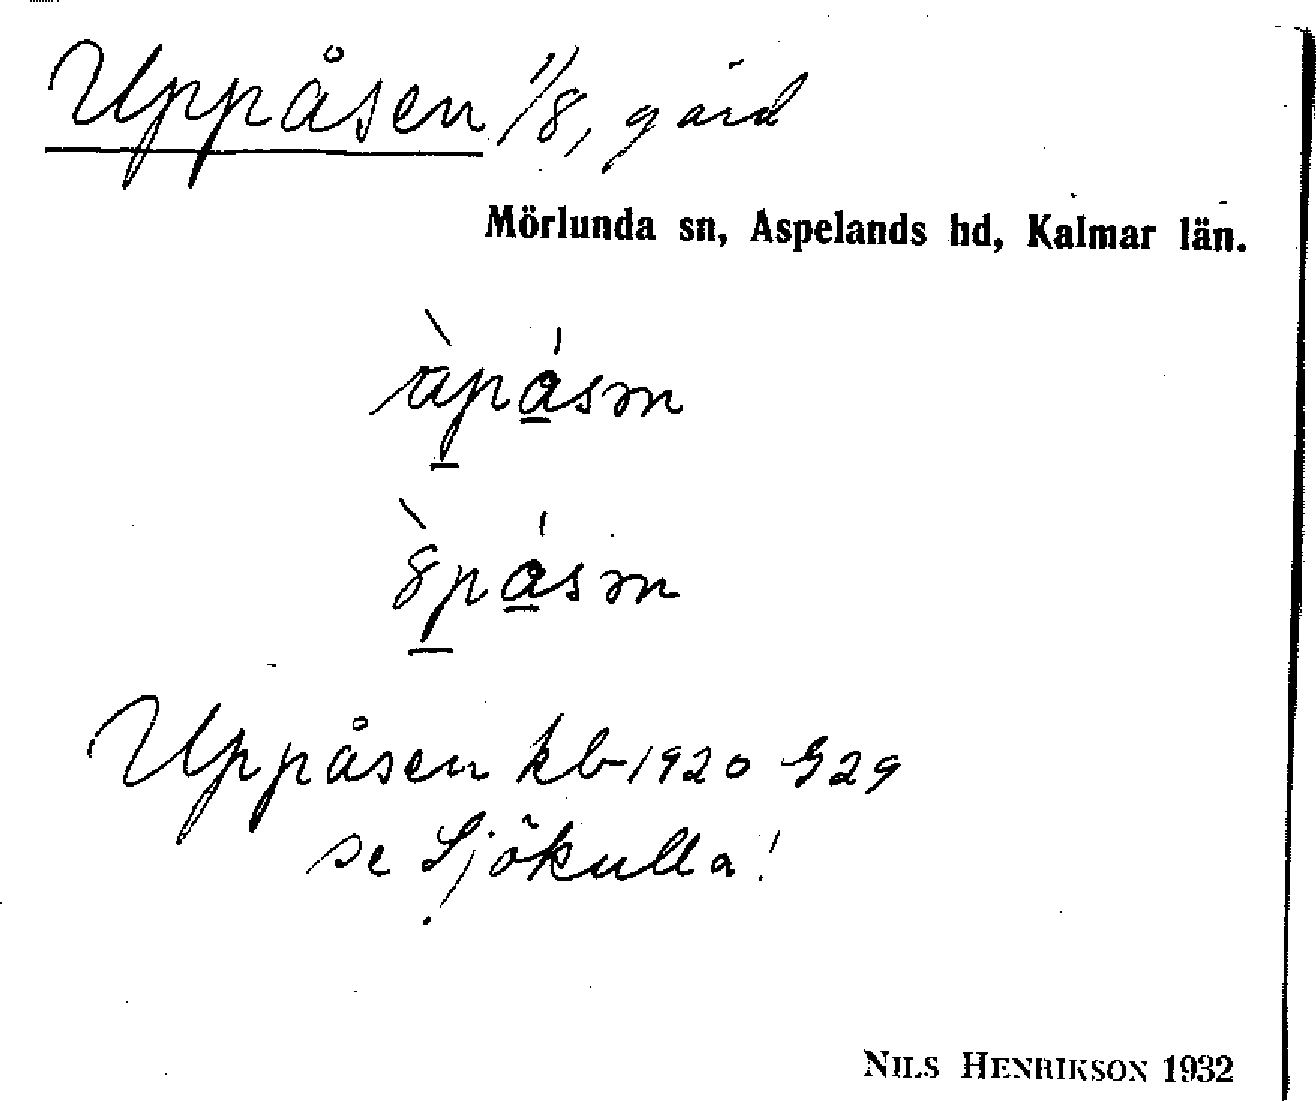 Uppåsen 1/8, gård
Mörlunda sn, Aspelands hd, Kalmar län.
Uppåsen kb 1920 S29
se Sjökulla!
NILS HENRIKSON 1932